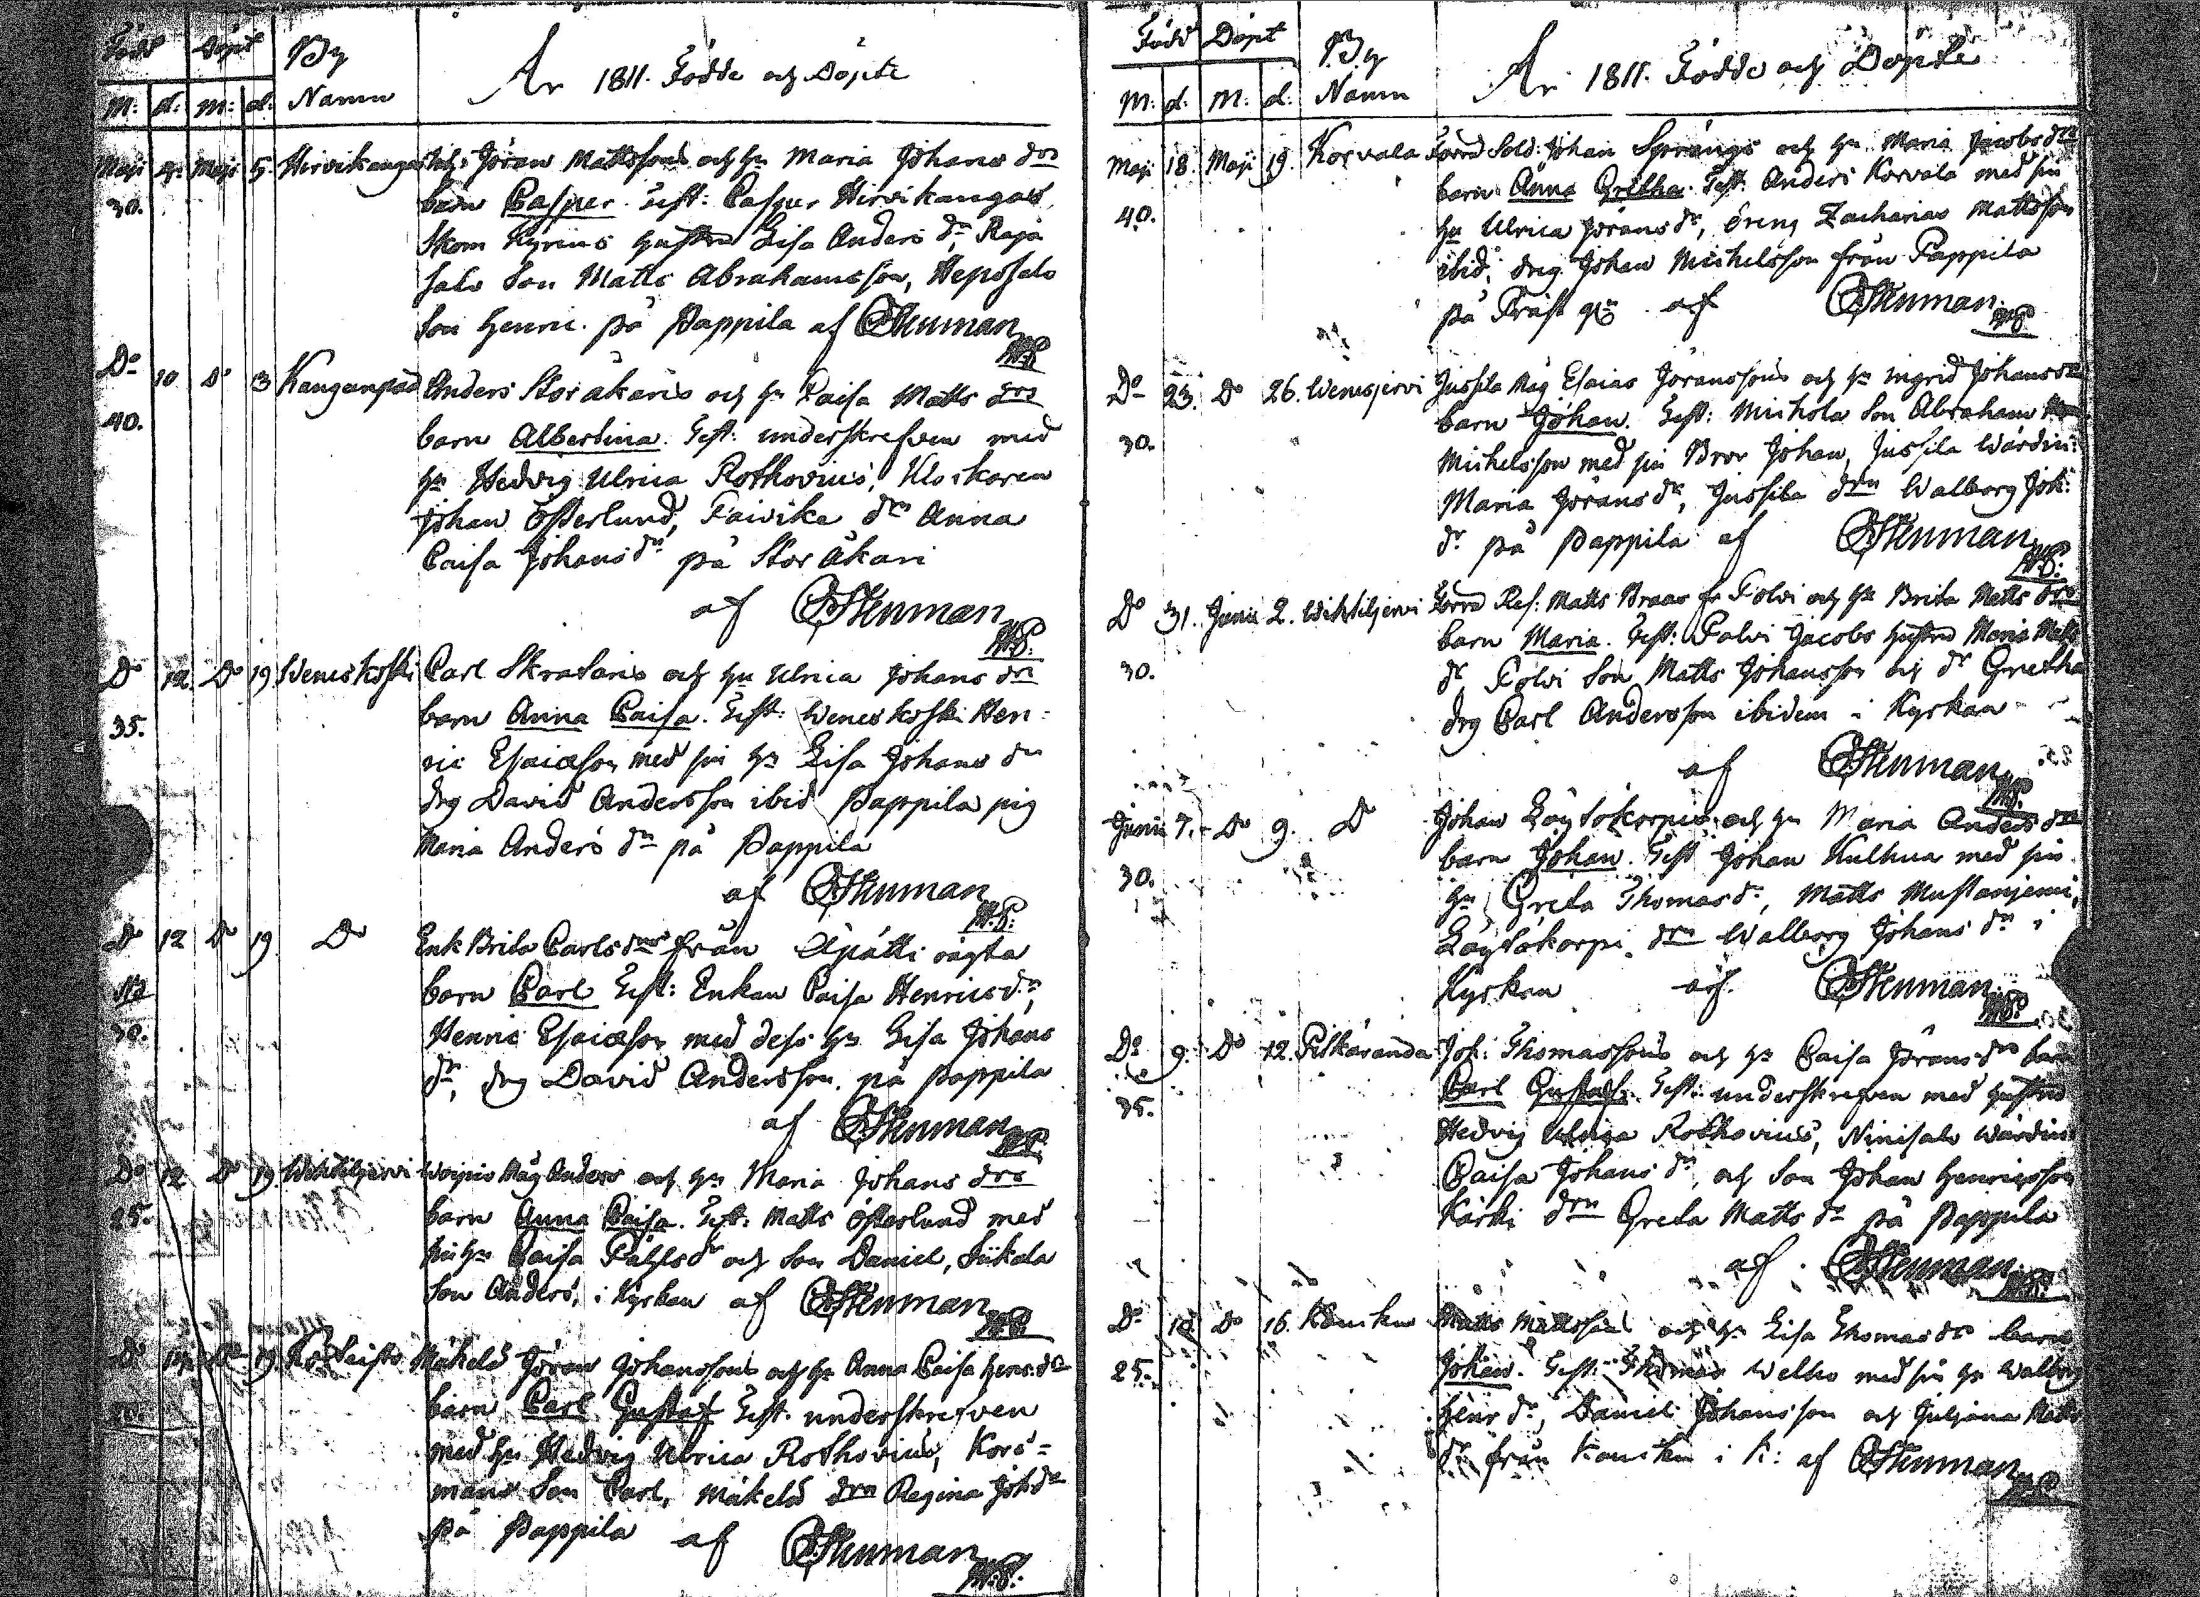 Född Döpt By
M: d: M: d: Namn
År 1811. Födde och Döpte
Maji Maji 5. Hirvikangas Jöran Mattssons och hu Maria Johans drs
30. barn Casper. Test: Casper Hirvikangas,
Skom hustru Lisa Anders dr, Raja
salo Son Matts Abrahamsson, Heposalo
Son Henric. på Pappila af Stenman
Do 10 Do 13 Anders Storåkaris och hu Caisa Matts drs
40. barn Albertina. Test: underskrefven med
hu Hedvig Ulrica Rothovius, Klockaren
Johan Österlund, dr Anna
Caisa Johans dr på Stor Åkari
af Stenman
Do 12 Do 19 Weneskoski Carl Skrataris och hu Ulrica Johans drs
35. barn Anna Caisa. Test: Weneskoski Hen-
ric Esaiæson med sin hu Lisa Johans dr
drg David Andersson ibid Pappila pig
Maria Anders dr på Pappila
af Stenman
Do 12 Do 19 Do Enk Brita Carls drs från oägta
barn Carl Test: Enkan Caisa Henrics dr,
30. Henric Esaiæson med dess hu Lisa Johans
dr, drg David Andersson på Pappila
af Stenman
Do 12 Do 19. Wihtiljervi Måg Anders och hu Maria Johans drs
25. barn Anna Caisa. Test: Matts Österlund med
sin hu Caisa dr och Son Daniel,
Son Anders, i Kyrkan af Stenman
Do Do 19. Mäkelä Jöran Johanssons och hu Anna Caisa Henr: drs
barn Carl Gustaf Test. underskrefven
med hu Hedvig Ulrica Rothovius, Kors-
mans Son Carl, Mäkelä drn Regina Joh dr
på Pappila af Stenman
Född Döpt By
M: d. M: d: Namn
År 1811. Födde och Döpte
Maji 18. Maji 19. Korvala Förra Sold: Johan Språngs och hu Maria Jacobs drs
40. barn Anna Gretha. Test: Anders Korvala med sin
hu Ulrica Jörans dr, dreng Zacharias Mattsson
ibid, drg Johan Michelsson från Pappila
på Präst af Stenman
Do 23. Do 26. Wenesjervi Jussila Måg Esaias Jöranssons och hu Ingrid Johans drs
30. barn Johan. Test: Michola Son Abraham
Michelsson med sin Bror Johan, Jussila Wärdin:
Maria Jörans dr, Jussila drn Walborg Joh:
dr på Pappila af Stenman
Do 31. Junii 2. Wihtiljervi Förra Res: Matts Braas fr Tolvi och hu Brita Matts drs
30. barn Maria. Test: Jacobs hustru Maria Matts
dr Tolvi Son Matts Johansson och dr Gretha
drg Carl Andersson ibidem i Kyrkan
af Stenman
Junii 7. Do 9. Do Johan Löytökorpis och hu Maria Anders drs
30. barn Johan. Test Johan Kulhua med sin
hu Greta Thomas dr, Matts Mustanjemi,
Löytökorpi drn Walborg Johans dr i
Kyrkan af Stenman
Do 9. Do 12. Pitkäranda Joh: Thomassons och hu Caisa Jörans drs barn
35. Carl Gustaf. Test: underskrefven med hustru
Hedvig Ulrica Rothovius, Niniсalo Wärdin:
Caisa Johans dr, och Son Johan Henricsson
Kärki drn Greta Matts dr på Pappila
af Stenman
Do Do 16. Matts Mattssons och hu Lisa Thomas drs barn
25. Johan. Test: Thomas Welho med sin hu Walborg
Henr dr, Daniel Johansson och Juliana Matts
dr från i K: af Stenman